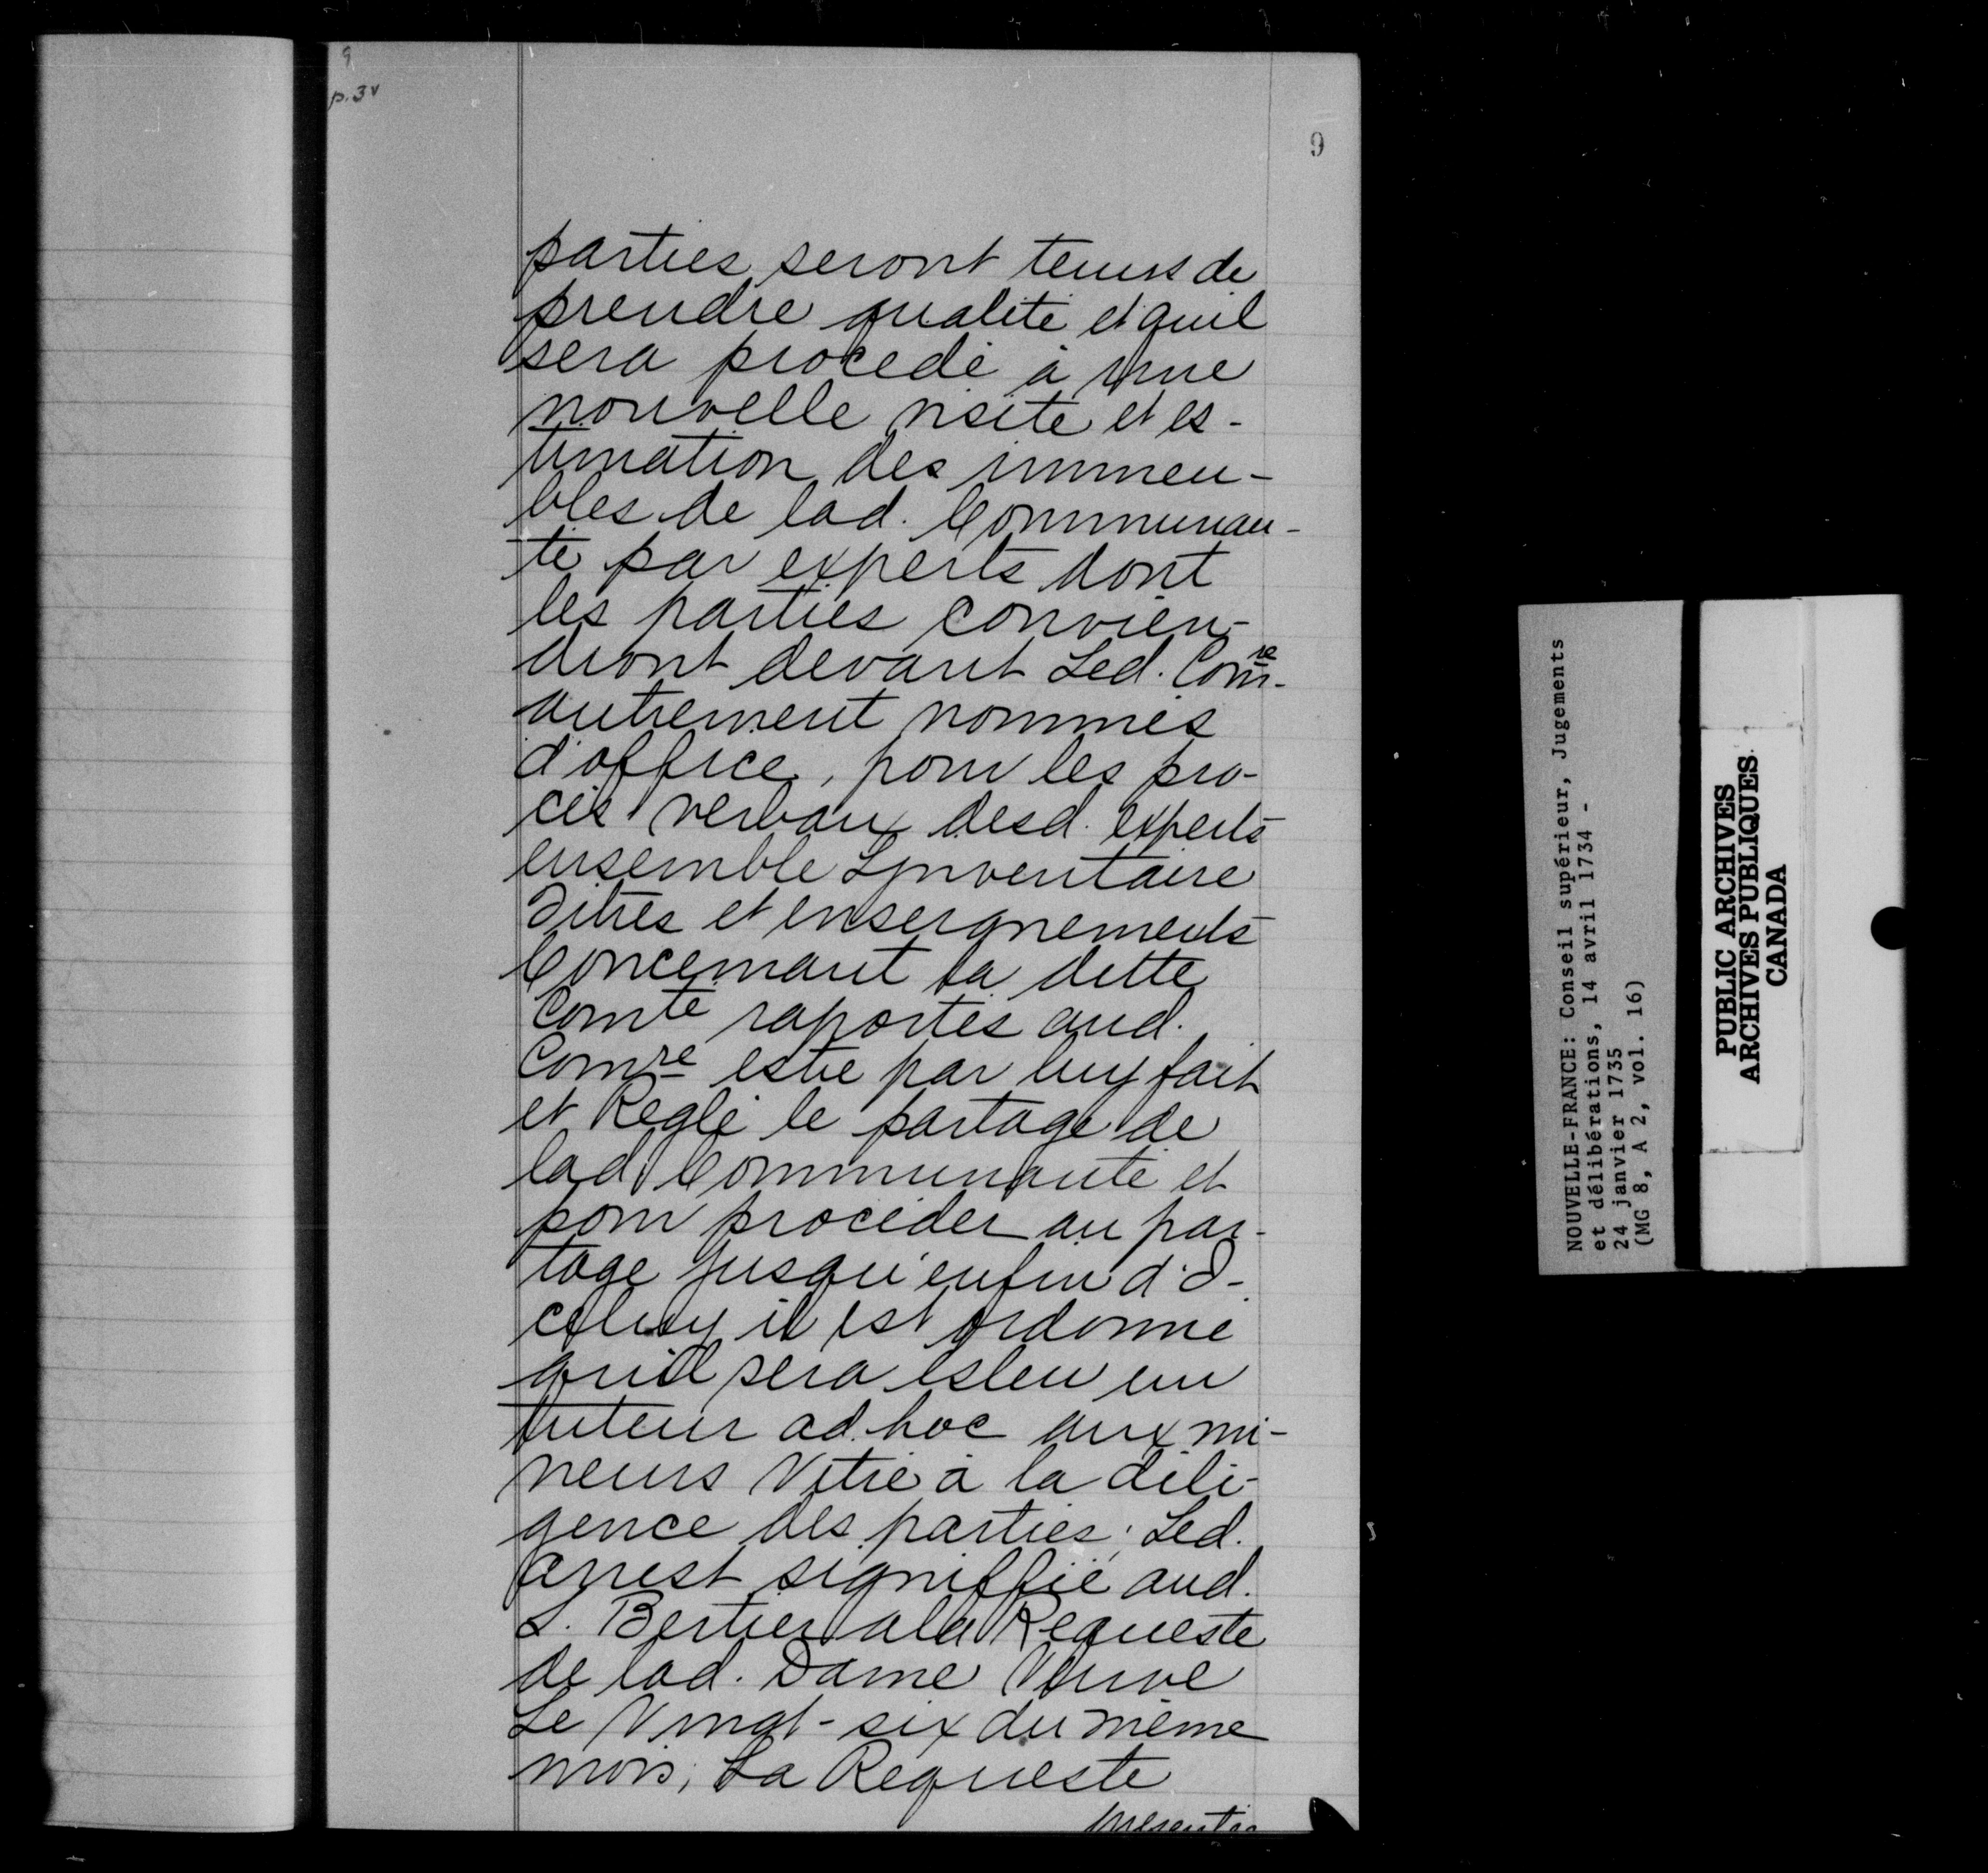 9
p. 3v
9
parties seront tenus de
prendre qualité et quil
sera procedé à une
nouvelle visite et es-
timation des immeu-
bles de lad. Communau-
té par experts dont
les parties convien-
dront devant Led. Comre
autrement nommés
d'office, pour les pro-
cès verbaux desd. experts
ensemble Linventaire
Titres et enseignements
Concernant la dette
Comté raportés aud.
Comre estre par luy fait
et Reglé le partage de
lad. Communauté et
pour proceder au par-
tage jusqu'enfin d'I-
celuy il est ordonné
quil sera esleu un
tuteur ad hoc aux mi-
neurs Vitré à la dili-
gence des parties; Led.
arrest signiffié aud.
S. Bertier a la Requeste
de lad. Dame Veuve
Le Vingt-six du même
mois; La Requeste
presentée
NOUVELLE-FRANCE: Conseil supérieur, Jugements
et délibérations, 14 avril 1734 -
24 janvier 1735
(MG 8, A 2, vol. 16)
PUBLIC ARCHIVES
ARCHIVES PUBLIQUES
CANADA